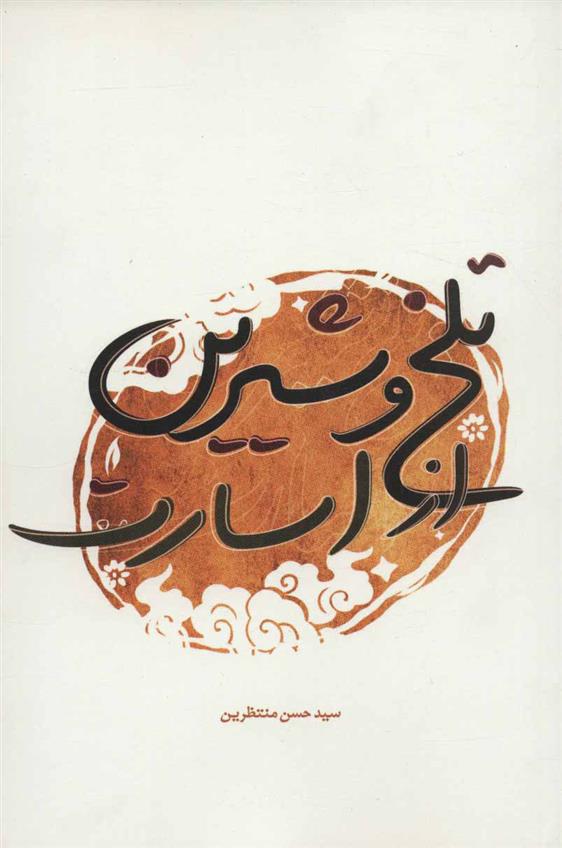 تلخ و شیرین
از اسارت
سید حسن منتظرین